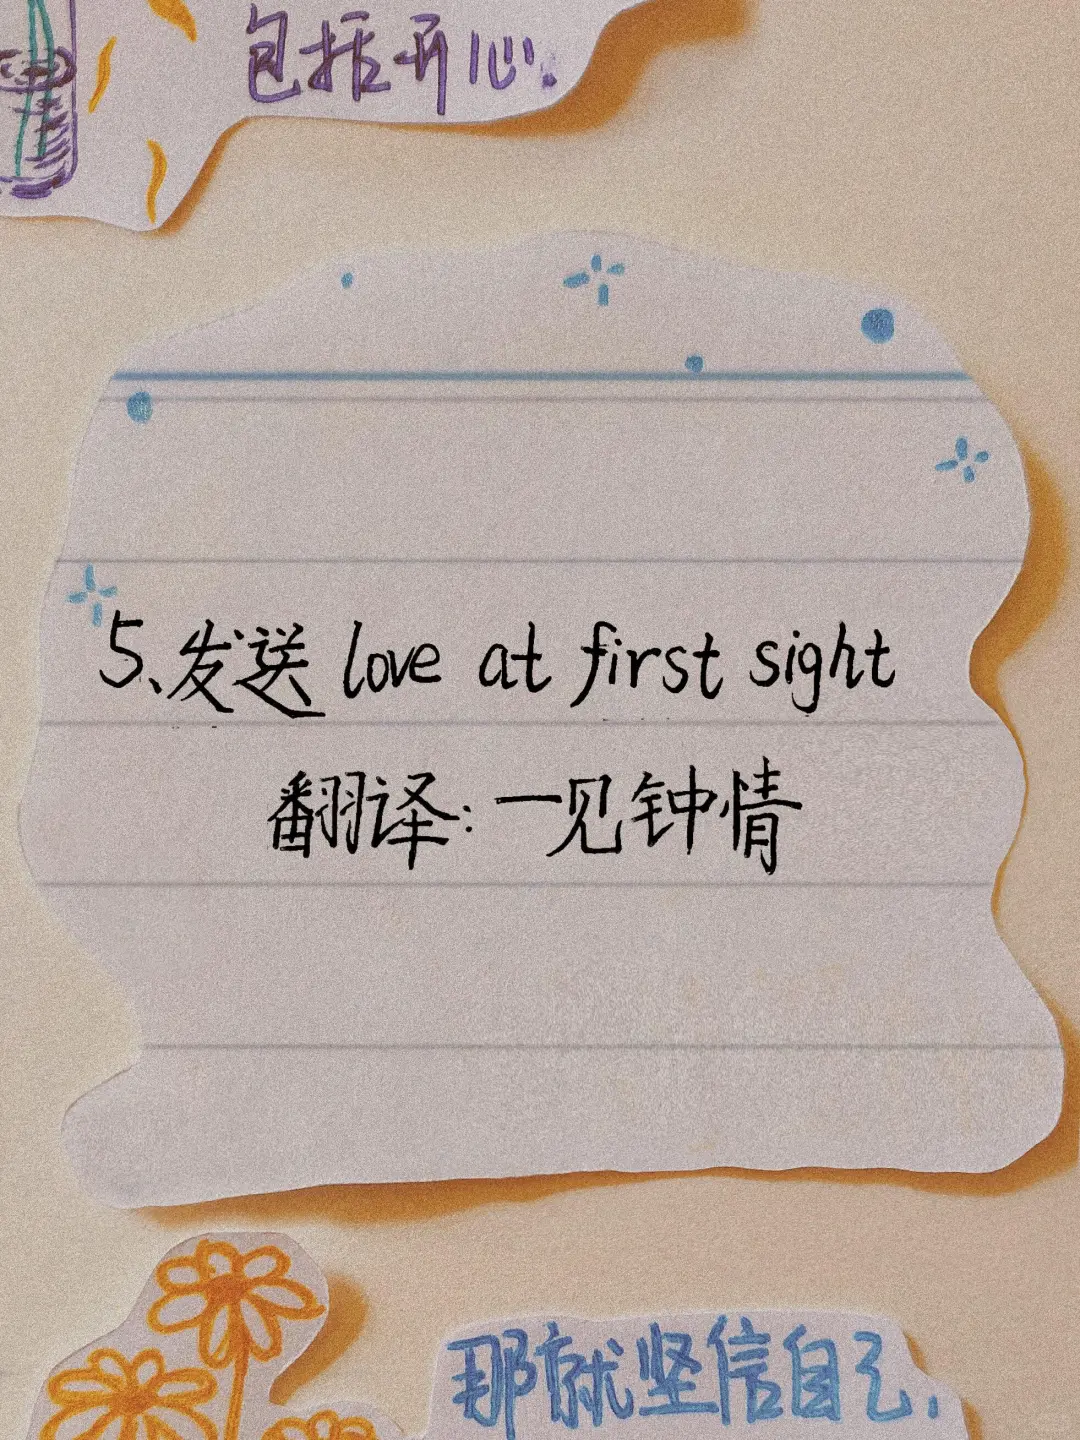 包括开心.
5、发送 love at first sight
翻译:一见钟情
那就坚信自己,